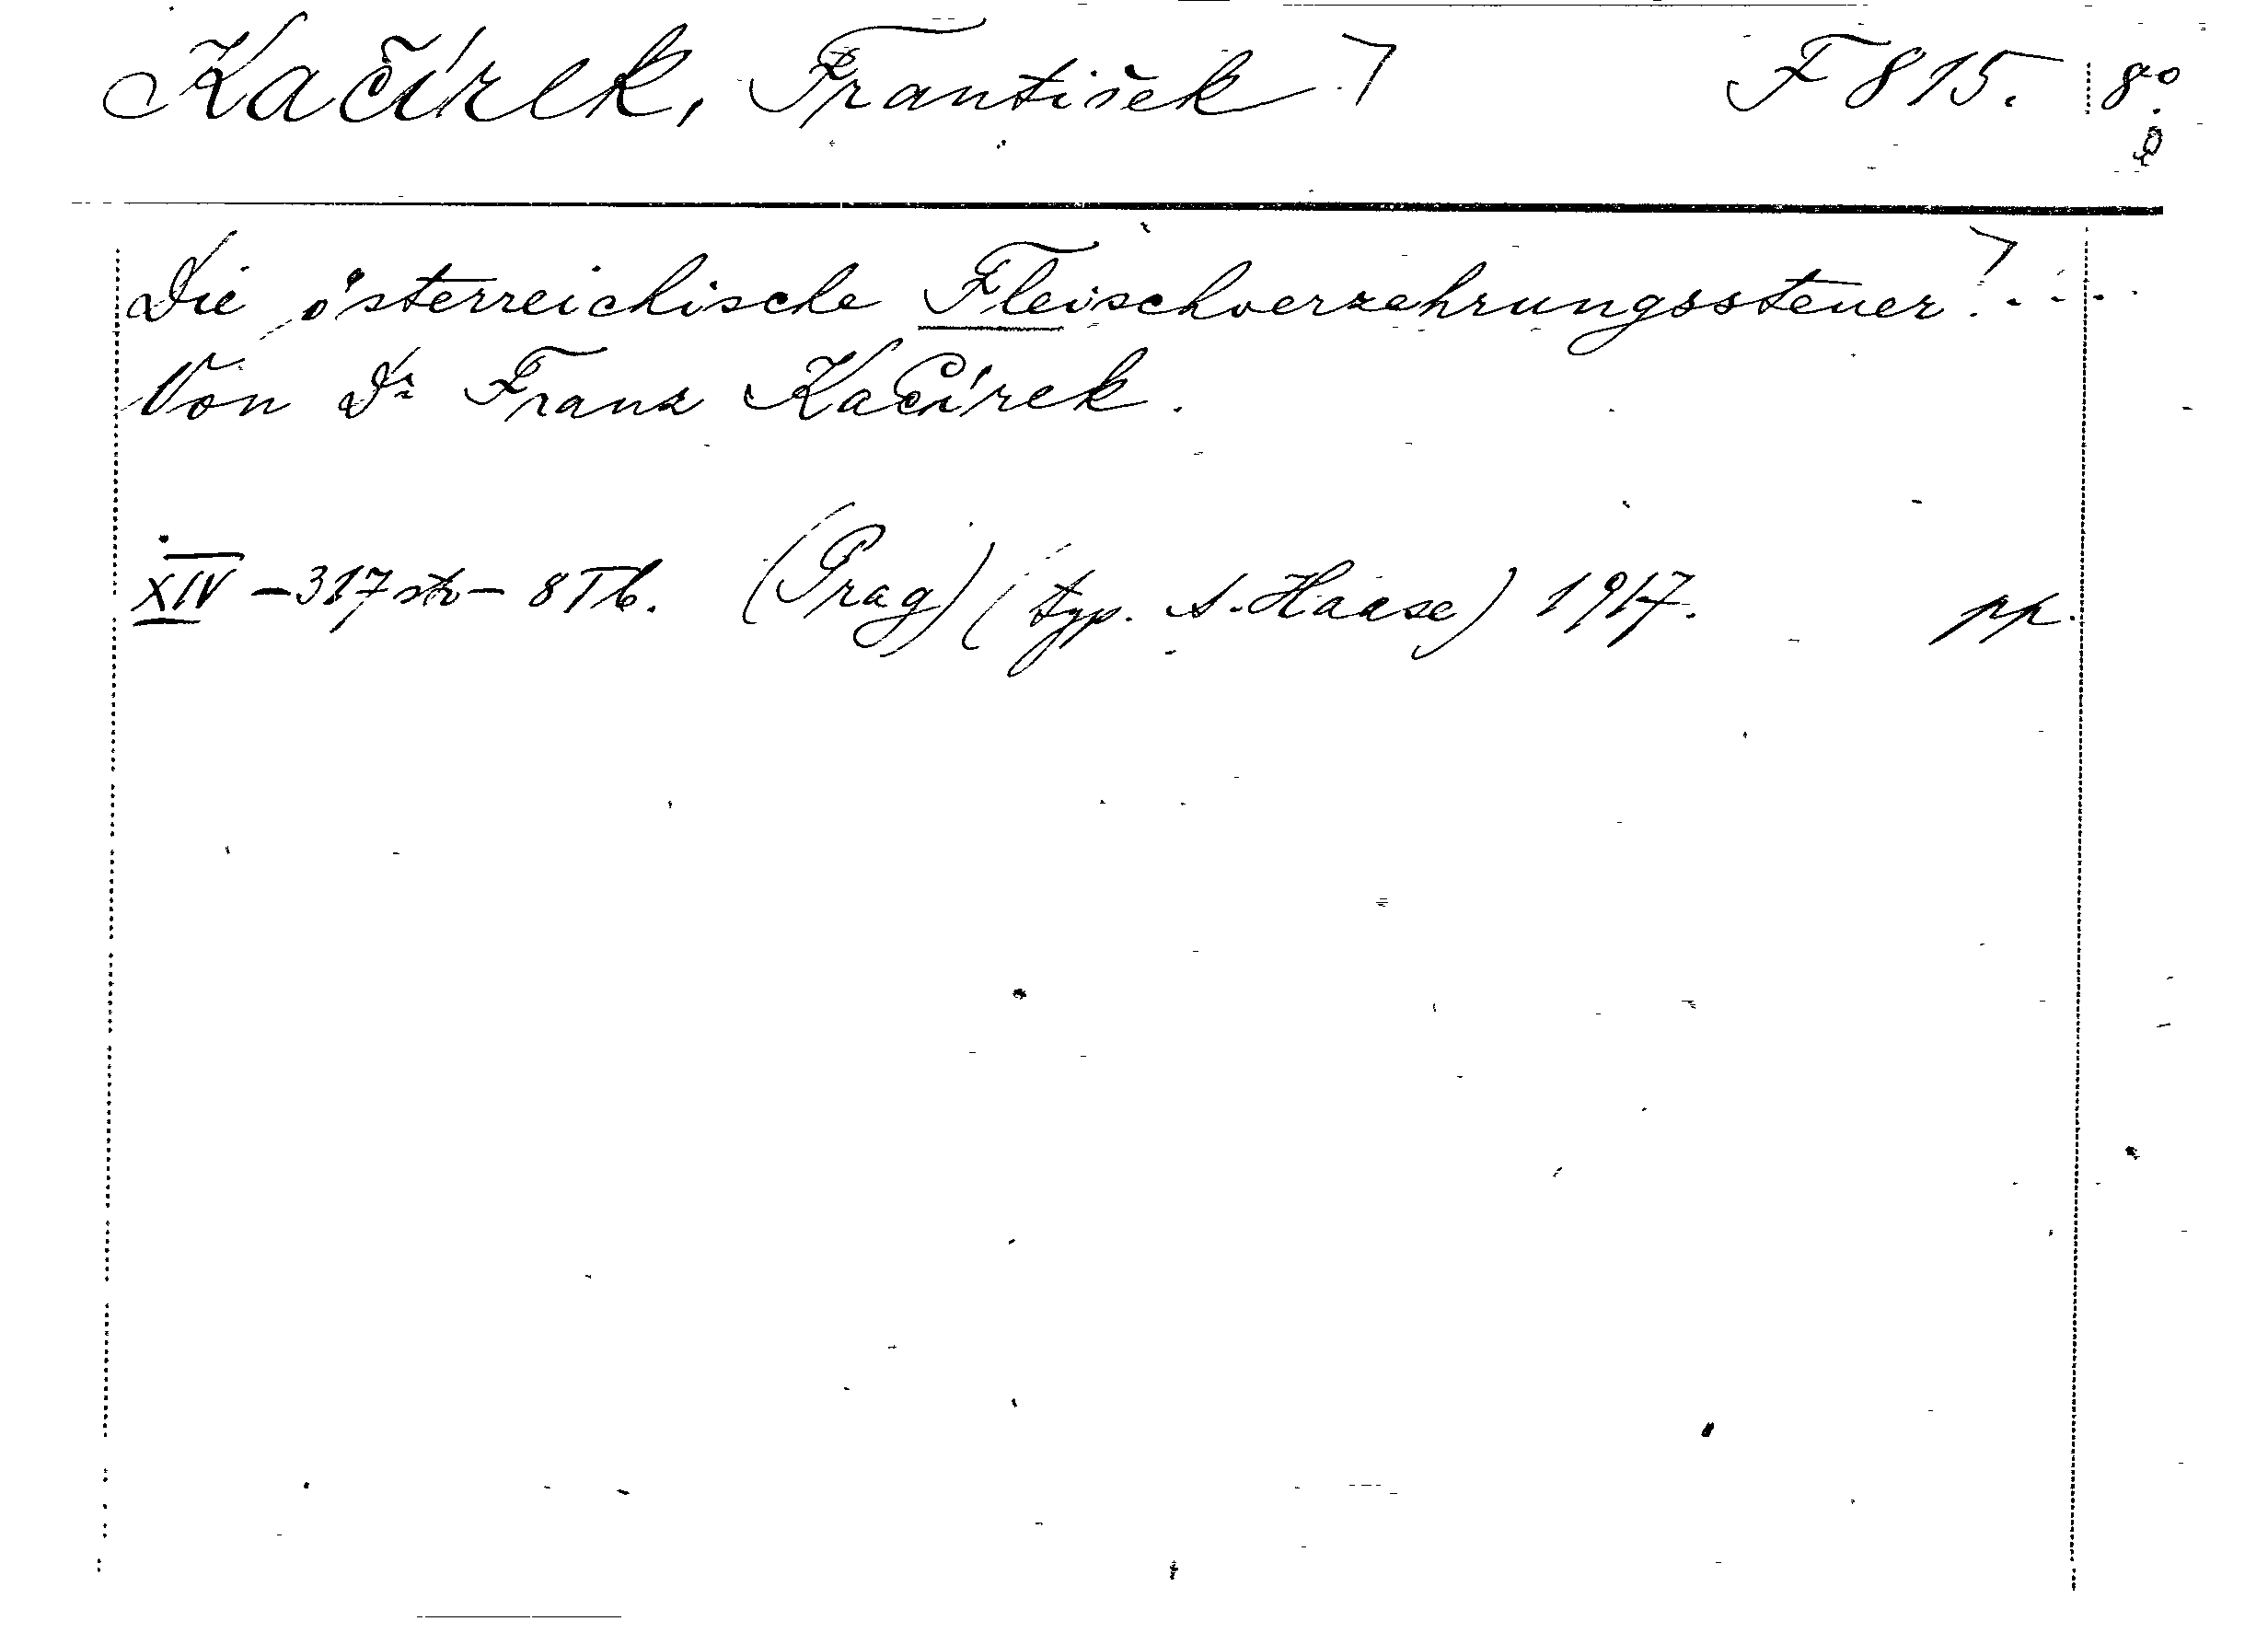 Kačírek, František ⁊ F 815. 8°
Die österreichische Fleischverzehrungssteuer!...
Von Dr Franz Kačírek.
XIV – 317 str – 8 Tb. (Prag) (typ. A. Haase) 1917. pp.